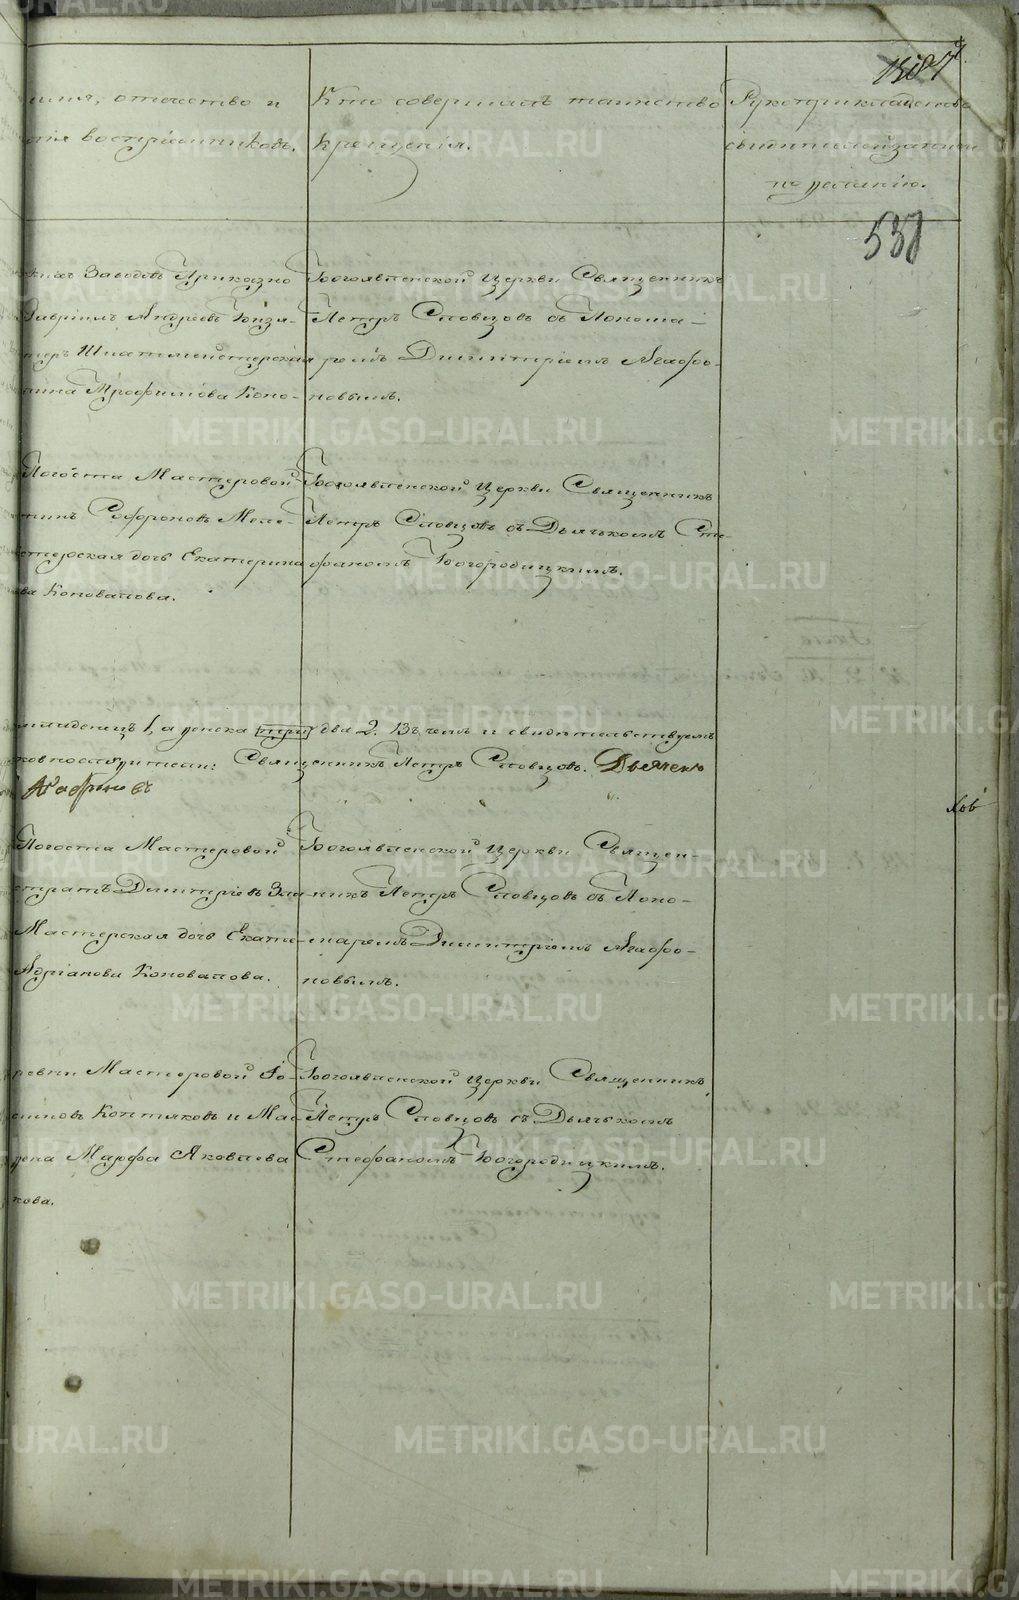 имя, отечество и
Кто совершалъ таинство
Рукоприкладство
воспріемниковъ.
крещенія.
свидѣтелей записи
по желанію.
538
Заводовъ Приказно
Гавріилъ Андреевъ
Шихтмейстерская
Трофимова Коно-
Богоявленской Церкви Священникъ
Петръ Словцовъ съ Понома-
ремъ Димитріемъ Агафо-
новымъ.
Погоста Мастеровой
Софроновъ Меле-
стерская дочь Екатерина
ва Коновалова.
Богоявленской Церкви Священникъ
Петръ Словцовъ съ Дьячькомъ Сте-
фаномъ Богородицкимъ.
младенецъ 1, а женска три два 2. Въ чемъ и свидѣтельствуемъ
Священникъ Петръ Словцовъ. Дьячекъ
Погоста Мастеровой
Димитріевъ
Мастерская дочь Екате-
Адріанова Коновалова.
Богоявленской Церкви Священ-
никъ Петръ Словцовъ съ Поно-
маремъ Димитріемъ Агафо-
новымъ.
ревни Мастеровой
Коптяковъ и Мас
жена Марфа Яковлева
кова.
Богоявленской Церкви Священникъ
Петръ Словцовъ съ Дьячькомъ
Стефаномъ Богородицкимъ.
METRIKI.GASO-URAL.RU